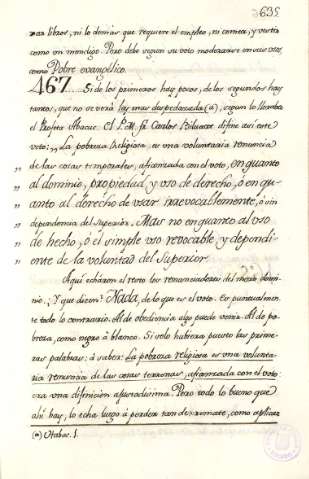 635
zar libros, ni lo demàs que requiere el empleo, ni comiera, y vistiera
como un mendigo. Pero debe segun su voto moderarse en sus usos,
como Pobre evangélico.
467. Si de los primeros hay pocos, de los segundos hay
tantos, que no se verà ley mas despedazada (a), segun lo llamba
el Profeta Abacuc. El P. M. fr. Carlos define asi este
voto: ,, La pobreza Religiosa, es una voluntaria renuncia
de las cosas temporales, afianzada con el voto, en quanto
al dominio, propiedad y uso de derecho, ò en qu-
anto al derecho de usar irrevocablemente, ò sin
dependencia del Superior. Mas no en quanto al uso
de hecho, ò el simple uso revocable y dependi-
ente de la voluntad del Superior.
Aqui echáron el resto los renunciadores del mero domi-
nio. ¿Y que dicen? Nada, de lo que es el voto. Es puntualmen-
te todo lo contrario. Al de obediencia algo puede servir. Al de po-
breza, como negro à blanco. Si solo hubiera puesto las prime-
ras palabras; à saber: La pobreza religiosa es una volunta-
ria renuncia de las cosas terrenas, afianzada con el voto:
era una difinicion ajustadisima. Pero todo lo bueno que
ahi hay, lo echa luego à perder tan derrematé, como aplicar
(a) Habac. 1.